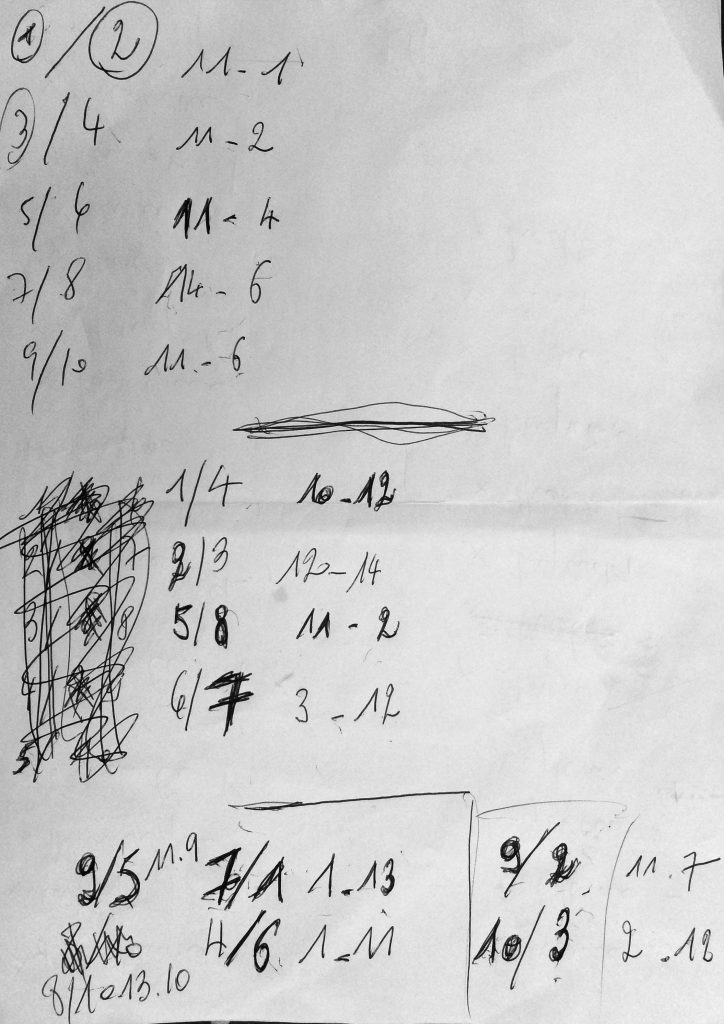 1 / 2 11 - 1
3 / 4 11 - 2
5 / 6 11 - 4
7 / 8 14 - 6
9 / 10 11 - 6
1 / 4 10 - 12
2 / 3 12 - 14
5 / 8 11 - 2
6 / 7 3 - 12
9 / 5 11.9 7 / 1 1 - 13 9 / 2 11.7
4 / 6 1 - 11 10 / 3 2.12
8 / 10 13.10